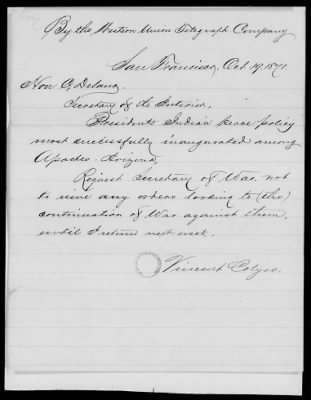 By the Western Union Telegraph Company
San Francisco, Oct 19, 1871.
Hon C. Delano,
Secretary of the Interior.
Presidents Indian peace policy
most successfully inaugurated among
Apaches - Arizona,
Request Secretary of War, not
to issue any orders looking to (the)
continuation of War against them,
until I return next week.
Vincent Colyer.